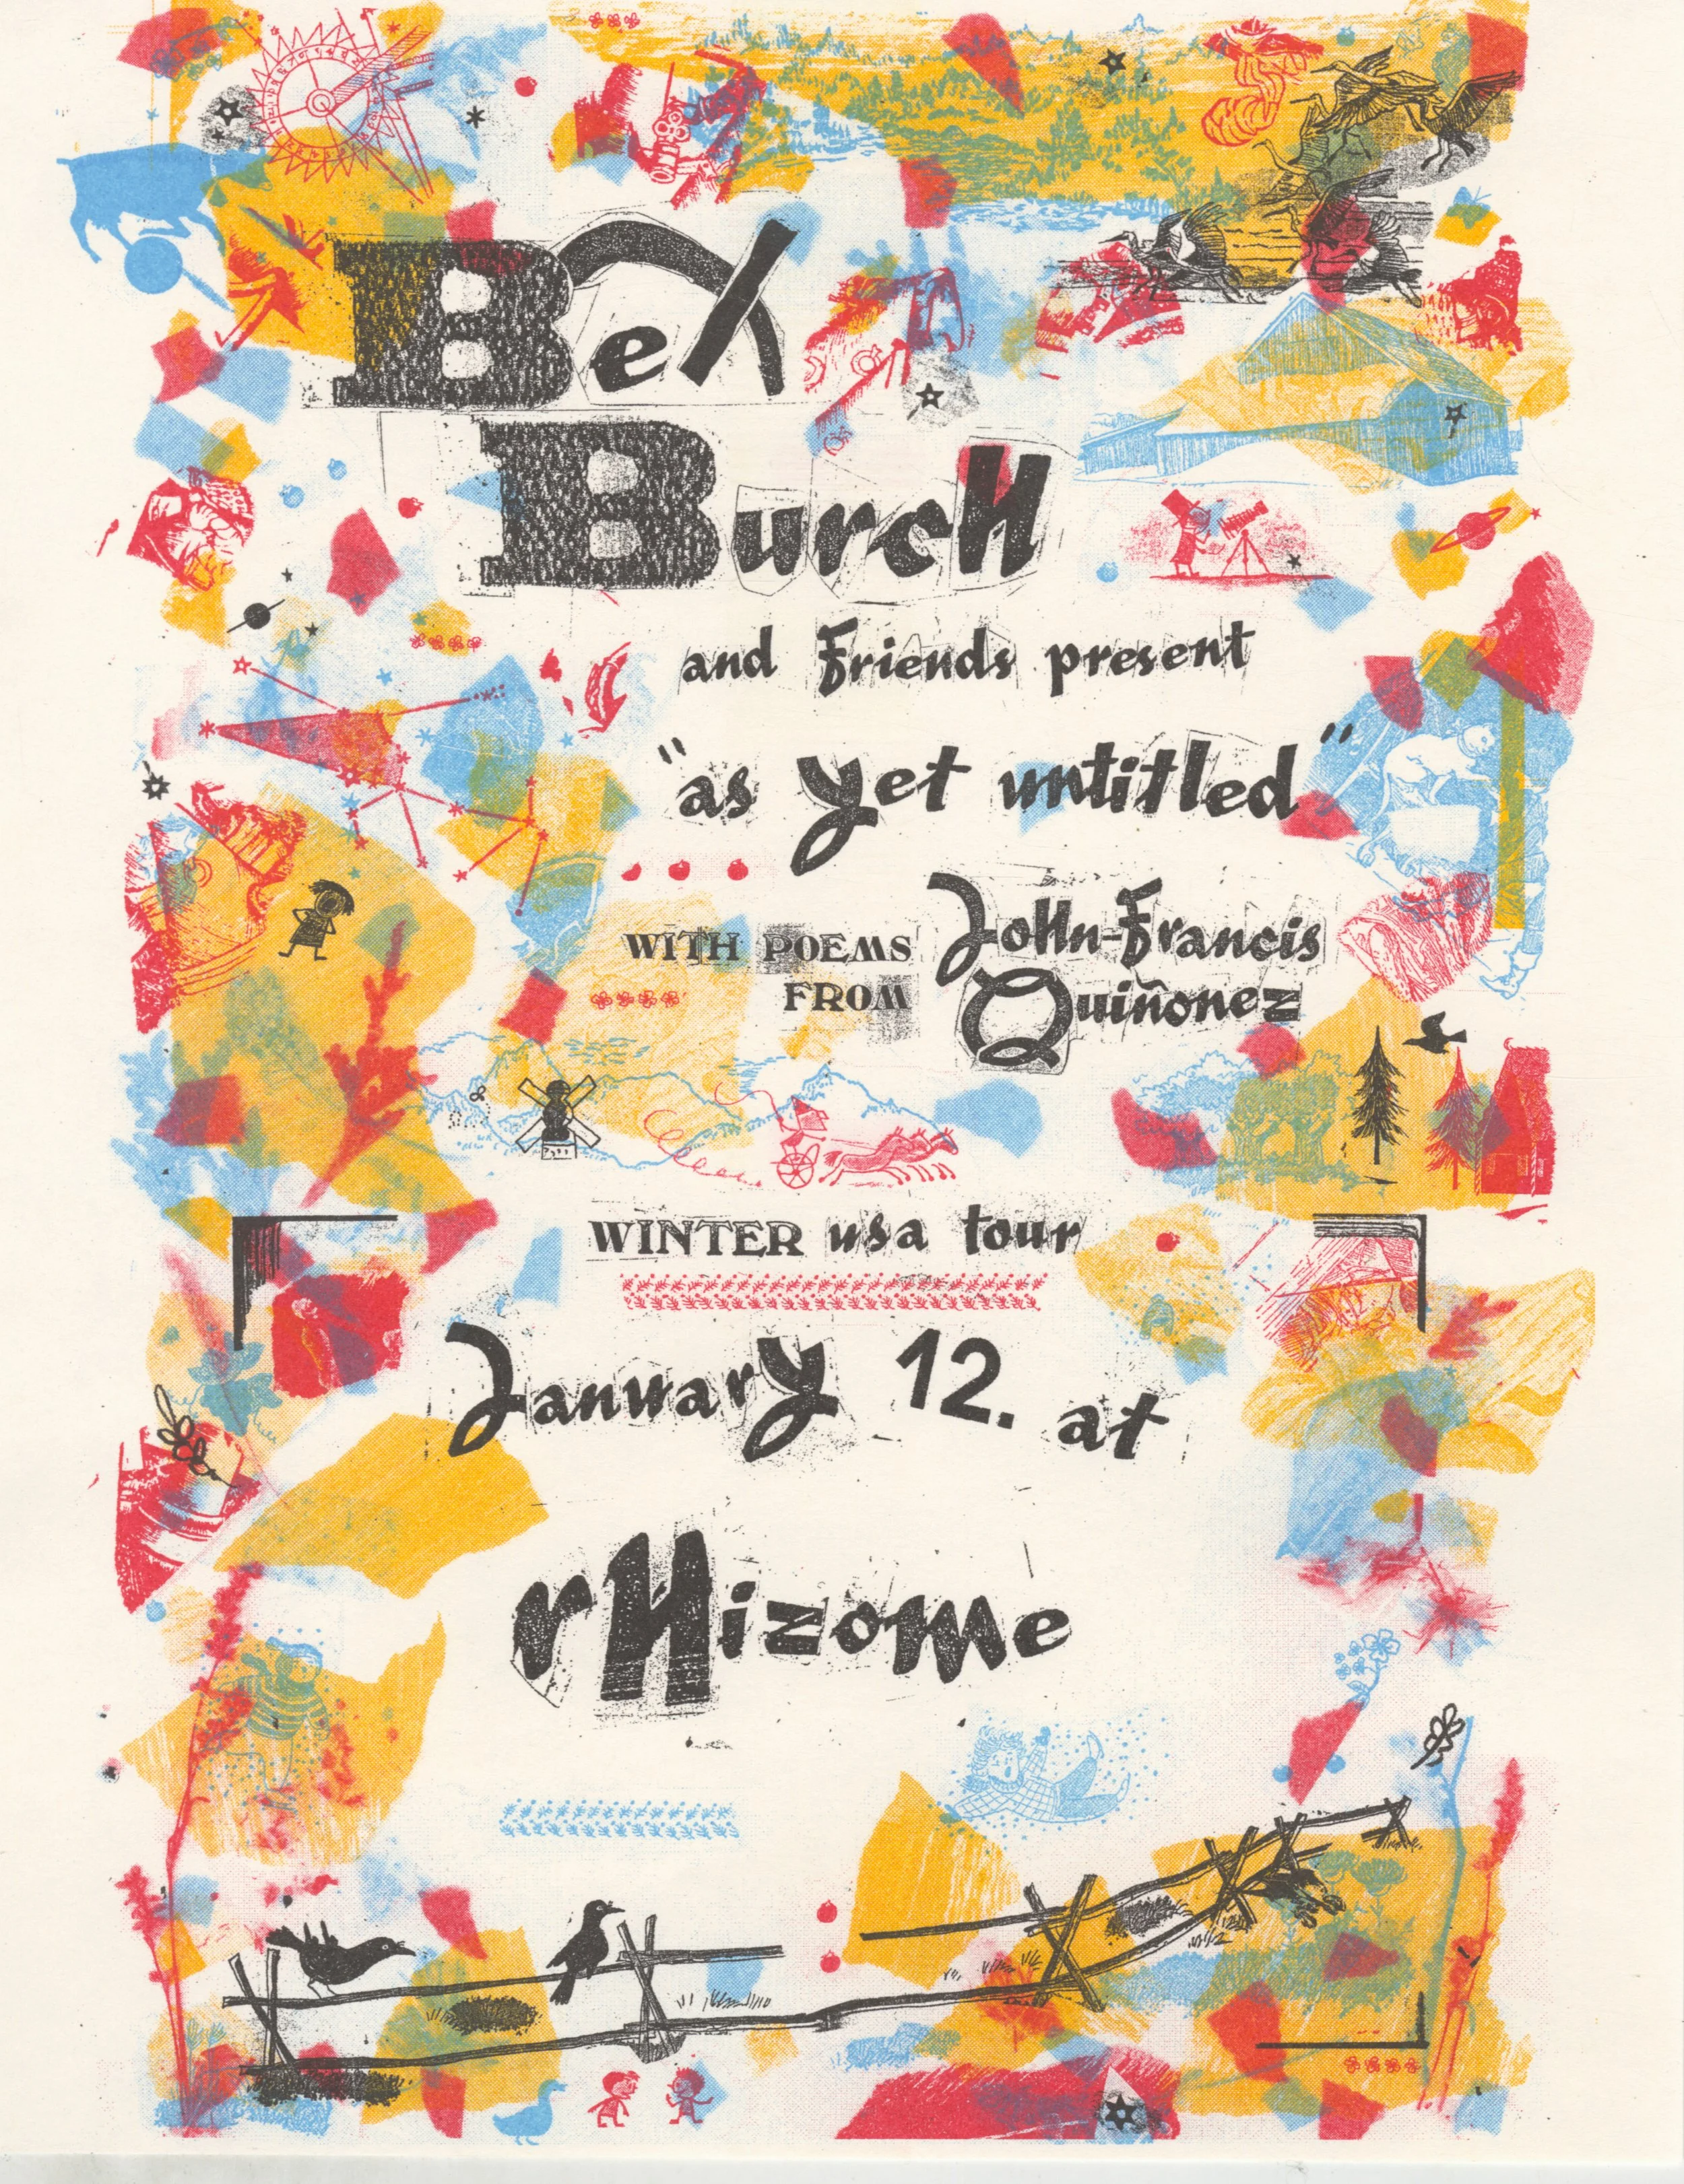 Bex
Burch
and Friends present
"as yet untitled"
WITH POEMS John-Francis
FROM Quiñonez
WINTER usa tour
January 12. at
rHizome